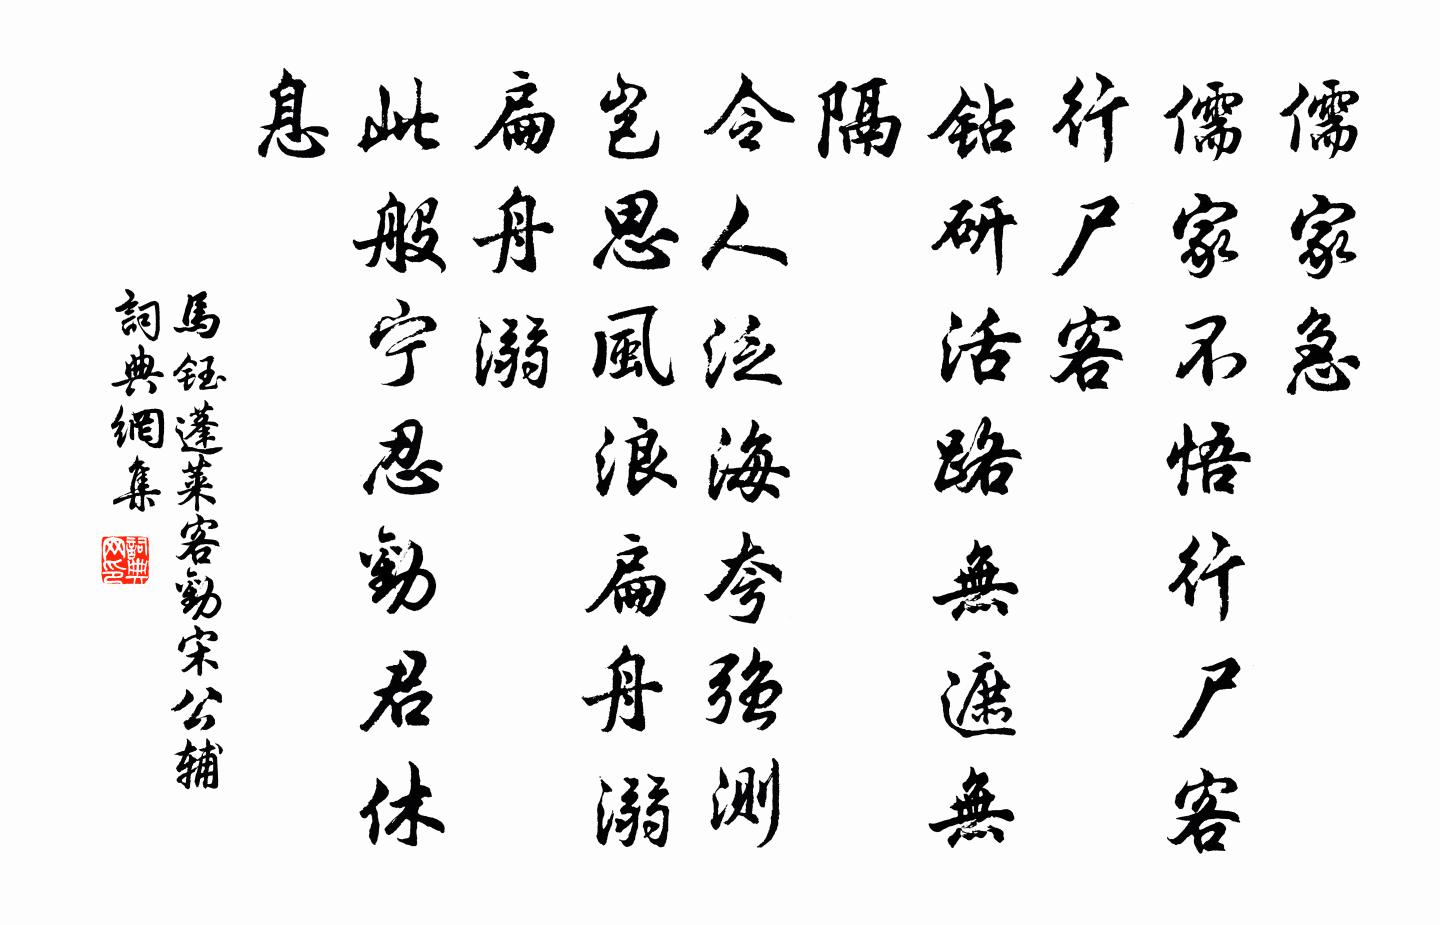 儒家急
儒家不悟行尸客
行尸客
钻研活路無遮無
隔
令人泛海夸強測
岂思風浪扁舟溺
扁舟溺
此般宁忍勸君休
息
馬鈺蓬萊客勸宋公辅
詞典網集
詞典网印